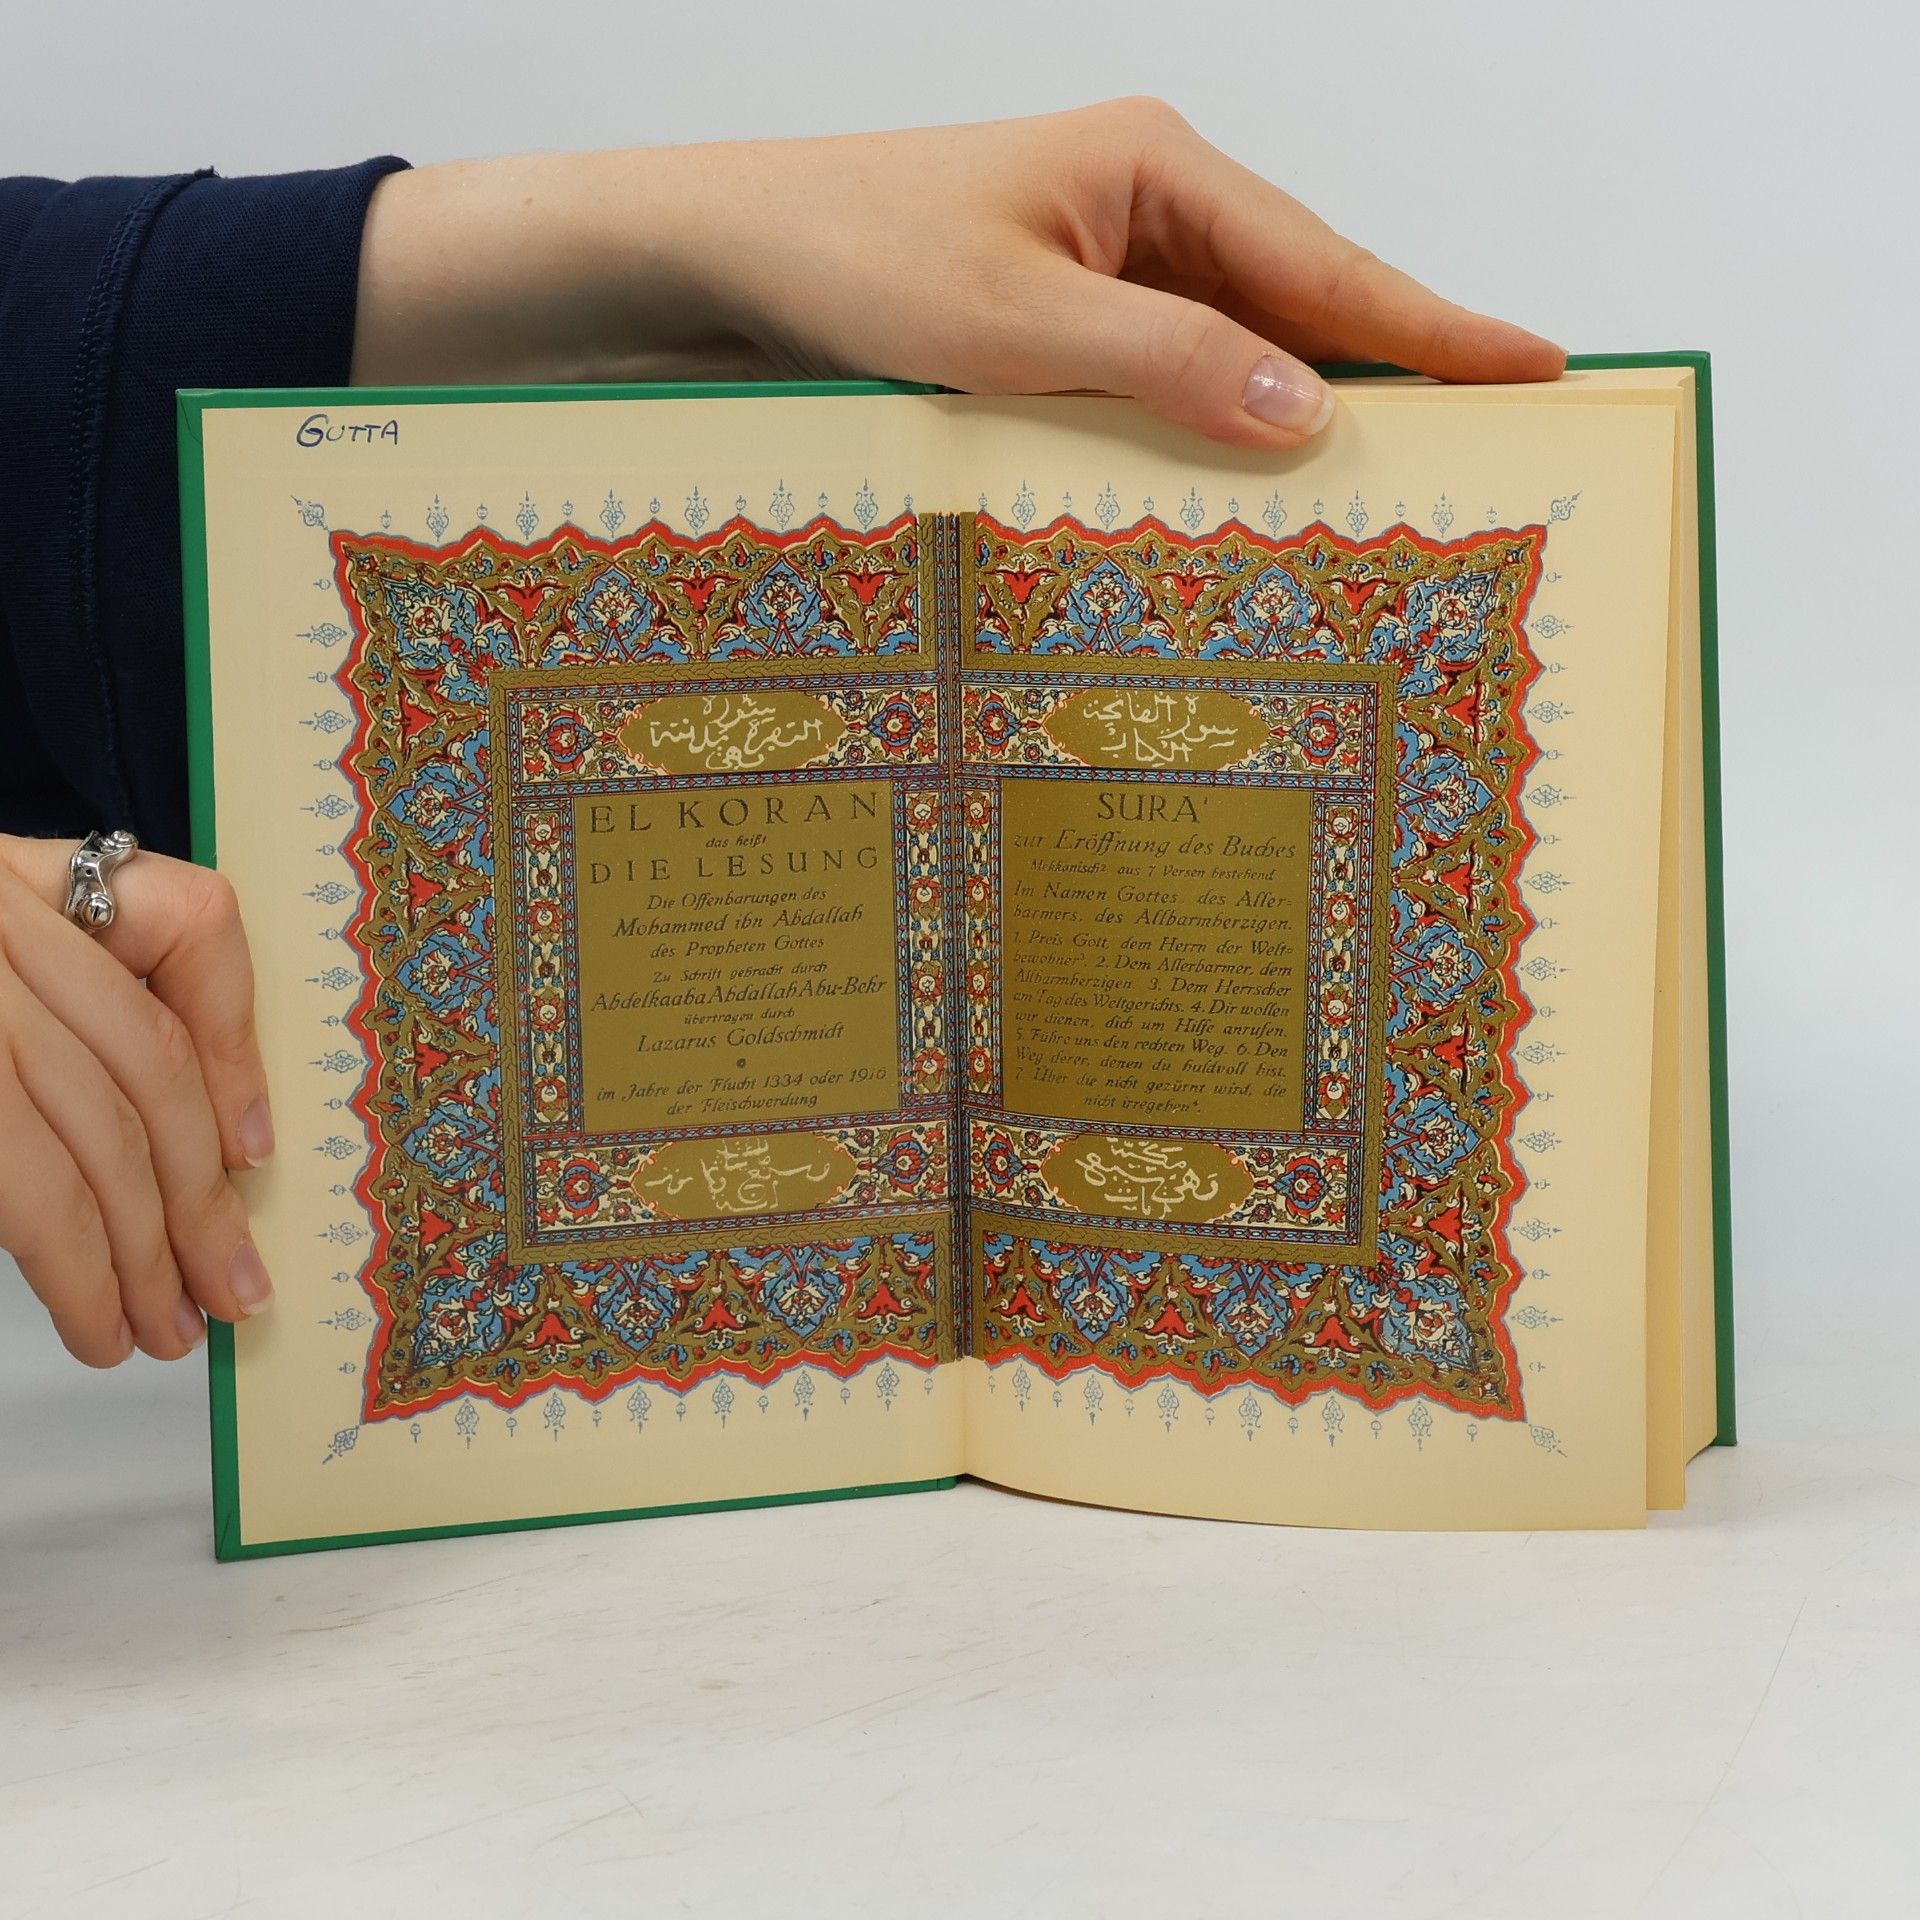 GUTTA
سورة
البقرة مدنية
وهي
EL KORAN
das heißt
DIE LESUNG
Die Offenbarungen des
Mohammed ibn Abdallah
des Propheten Gottes
Zu Schrift gebracht durch
Abdelkaaba Abdallah Abu-Bekr
übertragen durch
Lazarus Goldschmidt
im Jahre der Flucht 1334 oder 1916
der Fleischwerdung
سورة الفاتحة
الكتاب
SURA¹
zur Eröffnung des Buches
Mekkanisch² aus 7 Versen bestehend
Im Namen Gottes, des Aller-
barmers, des Allbarmherzigen.
1. Preis Gott, dem Herrn der Welt-
bewohner³. 2. Dem Allerbarmer, dem
Allbarmherzigen. 3. Dem Herrscher
am Tag des Weltgerichts. 4. Dir wollen
wir dienen, dich um Hilfe anrufen.
5. Führe uns den rechten Weg. 6. Den
Weg derer, denen du huldvoll bist.
7. Über die nicht gezürnt wird, die
nicht irregehen⁴.
مكية
وهي سبع
آيات